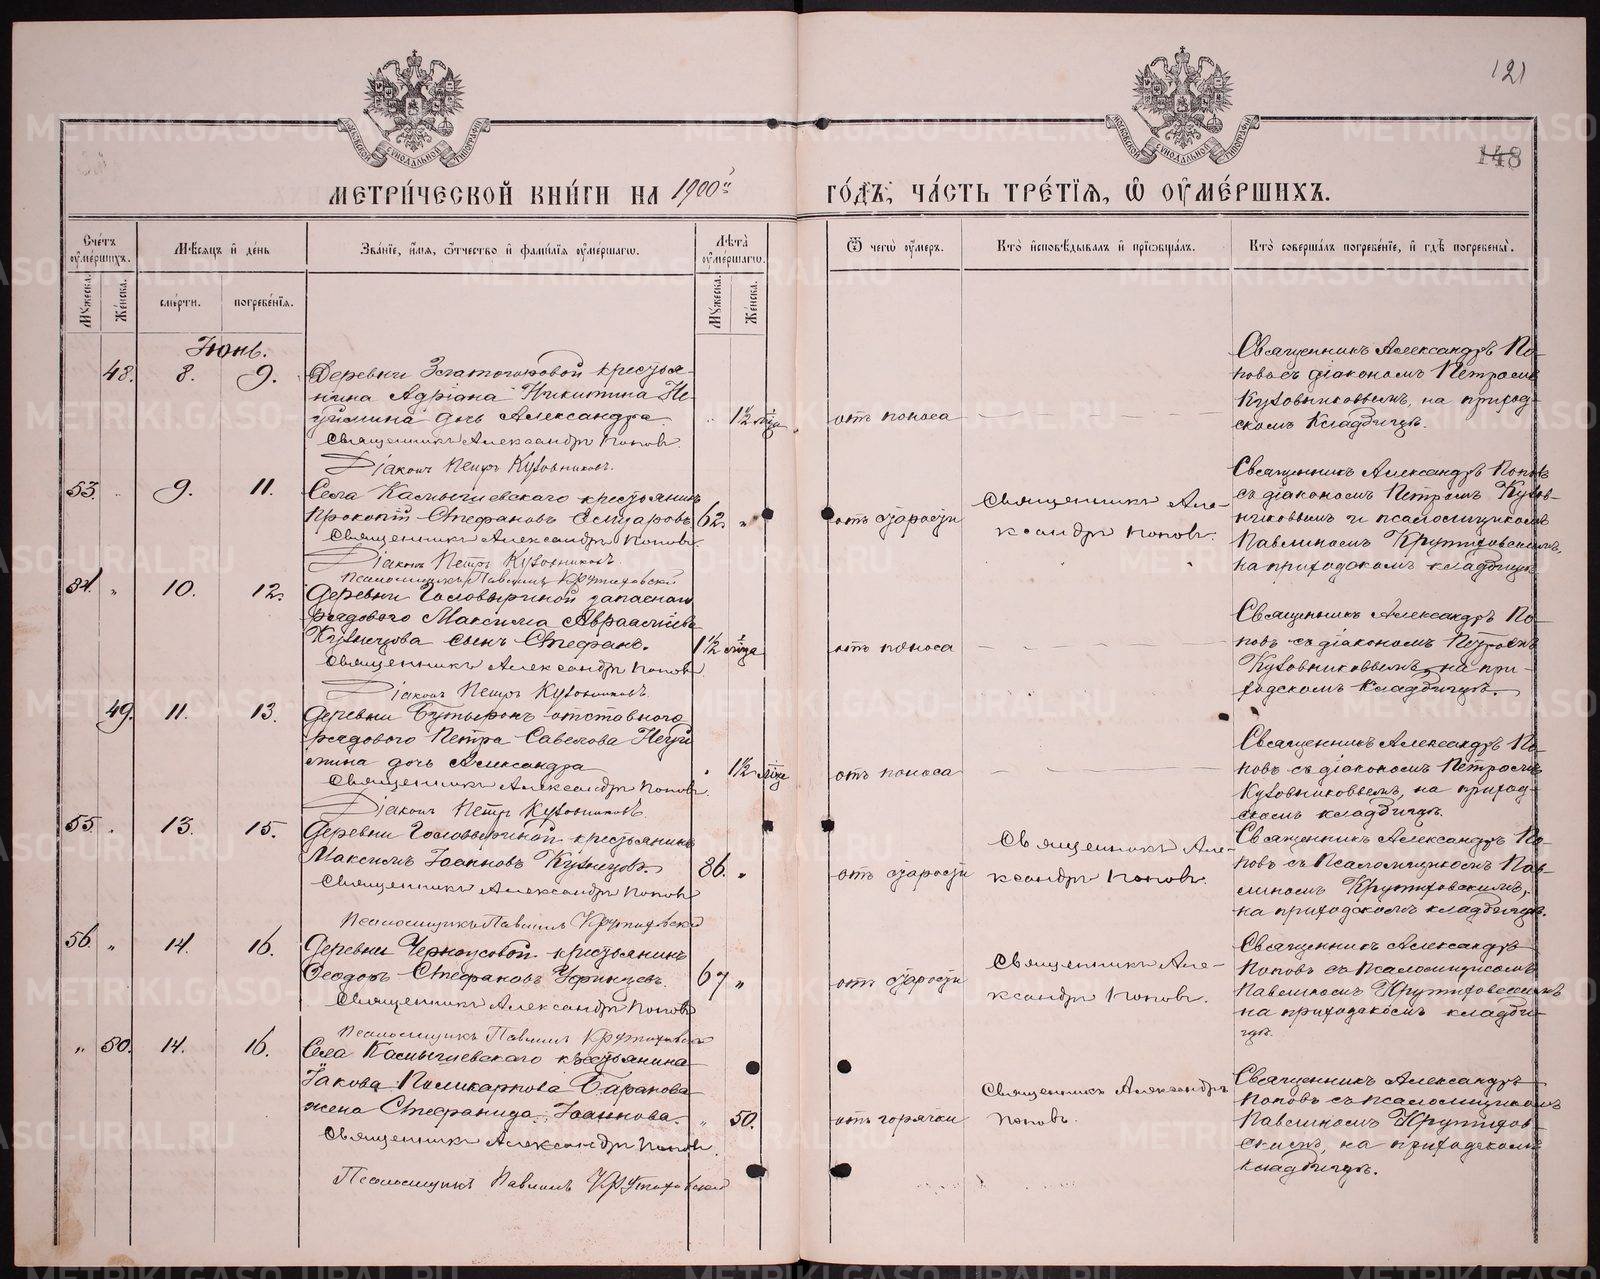 121
148
МОСКОВСКОЙ СѴНОДАЛЬНОЙ ТИПОГРАФІИ
МОСКОВСКОЙ СѴНОДАЛЬНОЙ ТИПОГРАФІИ
МЕТРИ́ЧЕСКОЙ КНИ́ГИ НА 1900й
ГО́ДЪ, ЧА́СТЬ ТРЕ́ТІЯ, Ѽ ОУМЕ́РШИХЪ.
Сче́тъ оуме́ршихъ.
Му́жеска.
Же́нска.
Мѣ́сяцъ и де́нь
сме́рти.
погребе́нїя.
Зва́нїе, и́мя, ѻ́тчество и фами́лїя оуме́ршагѡ.
Лѣ́та оуме́ршагѡ.
Му́жеска.
Же́нска.
Ѿ чегѡ̀ оу́меръ.
Кто̀ исповѣ́дывалъ и прїѡбща́лъ.
Кто̀ соверша́лъ погребе́нїе, и гдѣ̀ погребены̀.
Іюнь.
48. 8. 9. Деревни крестья-
нина Адріана Никитина Не-
дочь Александра
Священникъ Александръ Поповъ
Діаконъ Петръ Кузовниковъ.
1½ от поноса
Священникъ Александръ По-
повъ съ діакономъ Петромъ
Кузовниковымъ, на приход-
скомъ кладбищѣ.
53. " 9. 11. Села крестьянинъ
Прокопій Стефановъ
Священникъ Александръ Поповъ
Діаконъ Петръ Кузовниковъ
Псаломщикъ Павлинъ Крутиховскій
62. " отъ старости
Священникъ Але-
ксандръ Поповъ.
Священникъ Александръ Поповъ
съ діакономъ Петромъ Кузов-
никовымъ и псаломщикомъ
Павлиномъ Крутиховскимъ,
на приходскомъ кладбищѣ
54. " 10. 12. Деревни Головыриной запаснаго
рядового Максима Авраамiева
Кузнецова сынъ Стефанъ.
Священникъ Александръ Поповъ
Діаконъ Петръ Кузовниковъ.
1½ отъ поноса
Священникъ Александръ По-
повъ съ діакономъ Петромъ
Кузовниковымъ, на при-
ходскомъ кладбищѣ.
49. 11. 13. Деревни Бутырокъ отставного
рядового Петра Савелова
дочь Александра
Священникъ Александръ Поповъ.
Діаконъ Петръ Кузовниковъ.
" 1½ отъ поноса
Священникъ Александръ По-
повъ съ діакономъ Петромъ
Кузовниковымъ, на приход-
скомъ кладбищѣ.
55. " 13. 15. Деревни Головыриной крестьянинъ
Максимъ Іоанновъ Кузнецовъ.
Священникъ Александръ Поповъ
Псаломщикъ Павлинъ Крутиховскій
86. " отъ старости
Священникъ Але-
ксандръ Поповъ.
Священникъ Александръ По-
повъ съ Псаломщикомъ Пав-
линомъ Крутиховскимъ,
на приходскомъ кладбищѣ.
56. " 14. 16. Деревни Черноусовой крестьянинъ
Феодоръ Стефановъ Уфинцевъ.
Священникъ Александръ Поповъ
Псаломщикъ Павлинъ Крутиховскій
67 " отъ старости
Священникъ Але-
ксандръ Поповъ.
Священникъ Александръ
Поповъ съ Псаломщикомъ
Павлиномъ Крутиховскимъ
на приходскомъ кладби-
щѣ.
" 50. 14. 16. Села крестьянина
Іакова Поликарпова Баранова
жена Стефанида Іоаннова.
Священникъ Александръ Поповъ.
Псаломщикъ Павлинъ Крутиховскій
" 50. отъ горячки
Священникъ Александръ
Поповъ.
Священникъ Александръ
Поповъ съ псаломщикомъ
Павлиномъ Крутихов-
скимъ, на приходскомъ
кладбищѣ.
METRIKI.GASO-URAL.RU